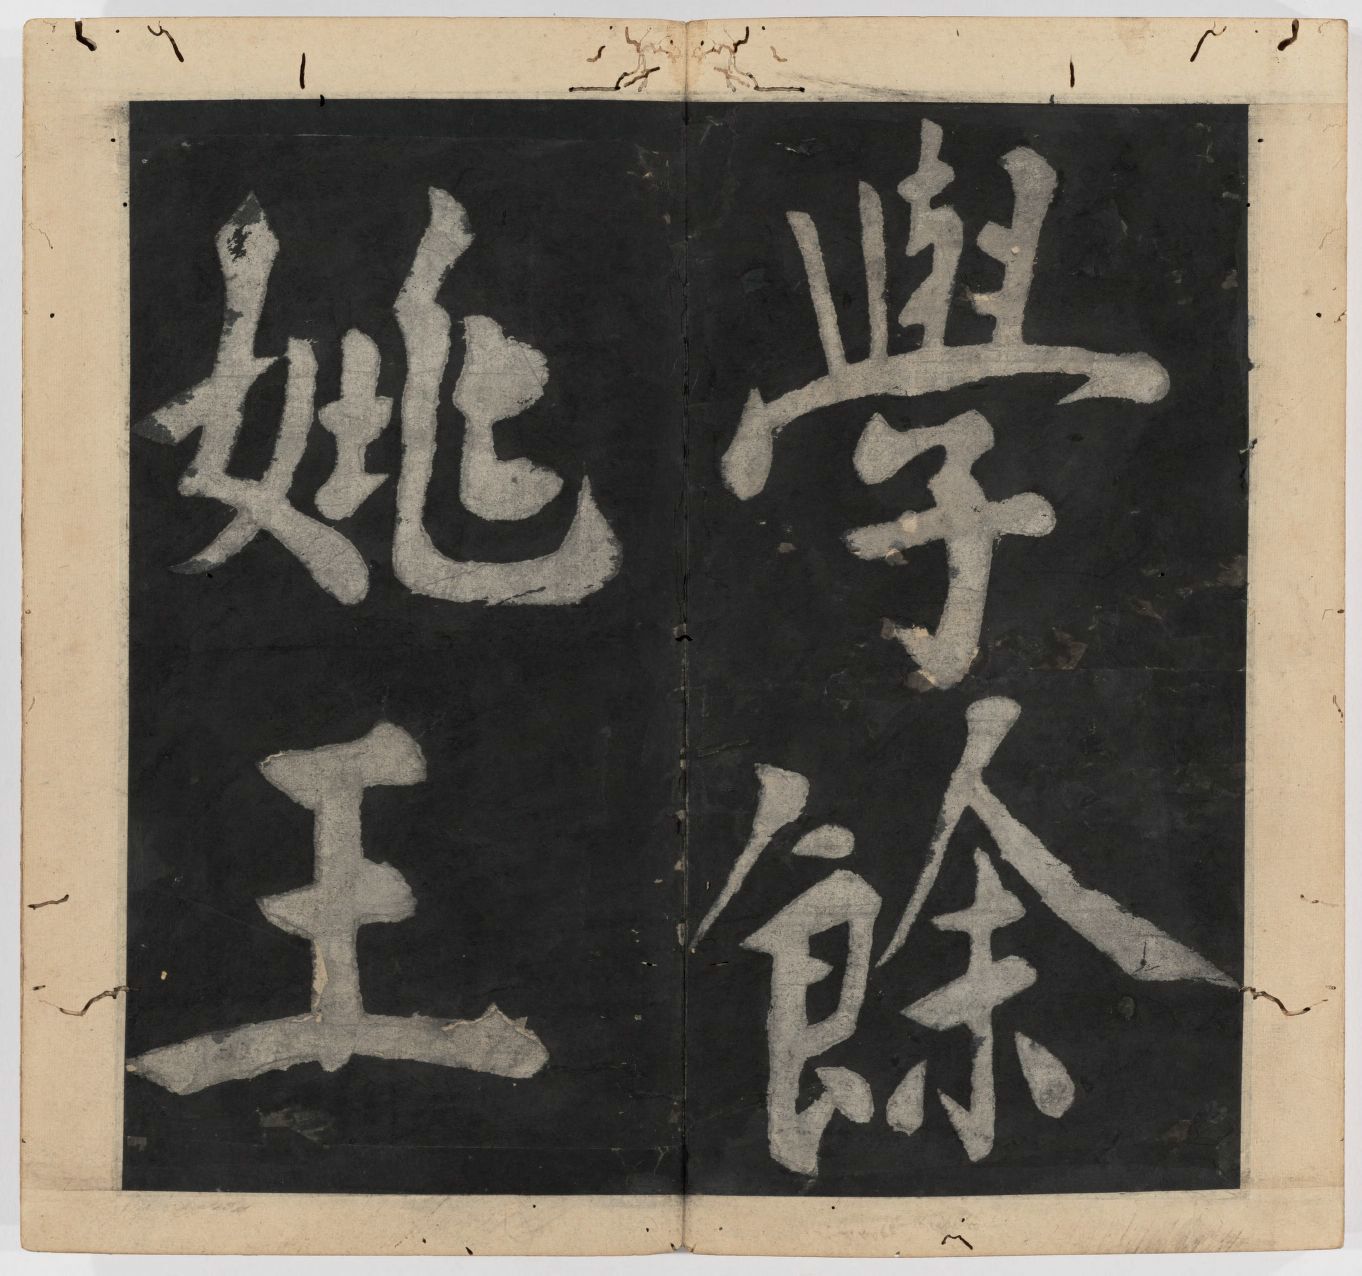 學餘
姚王